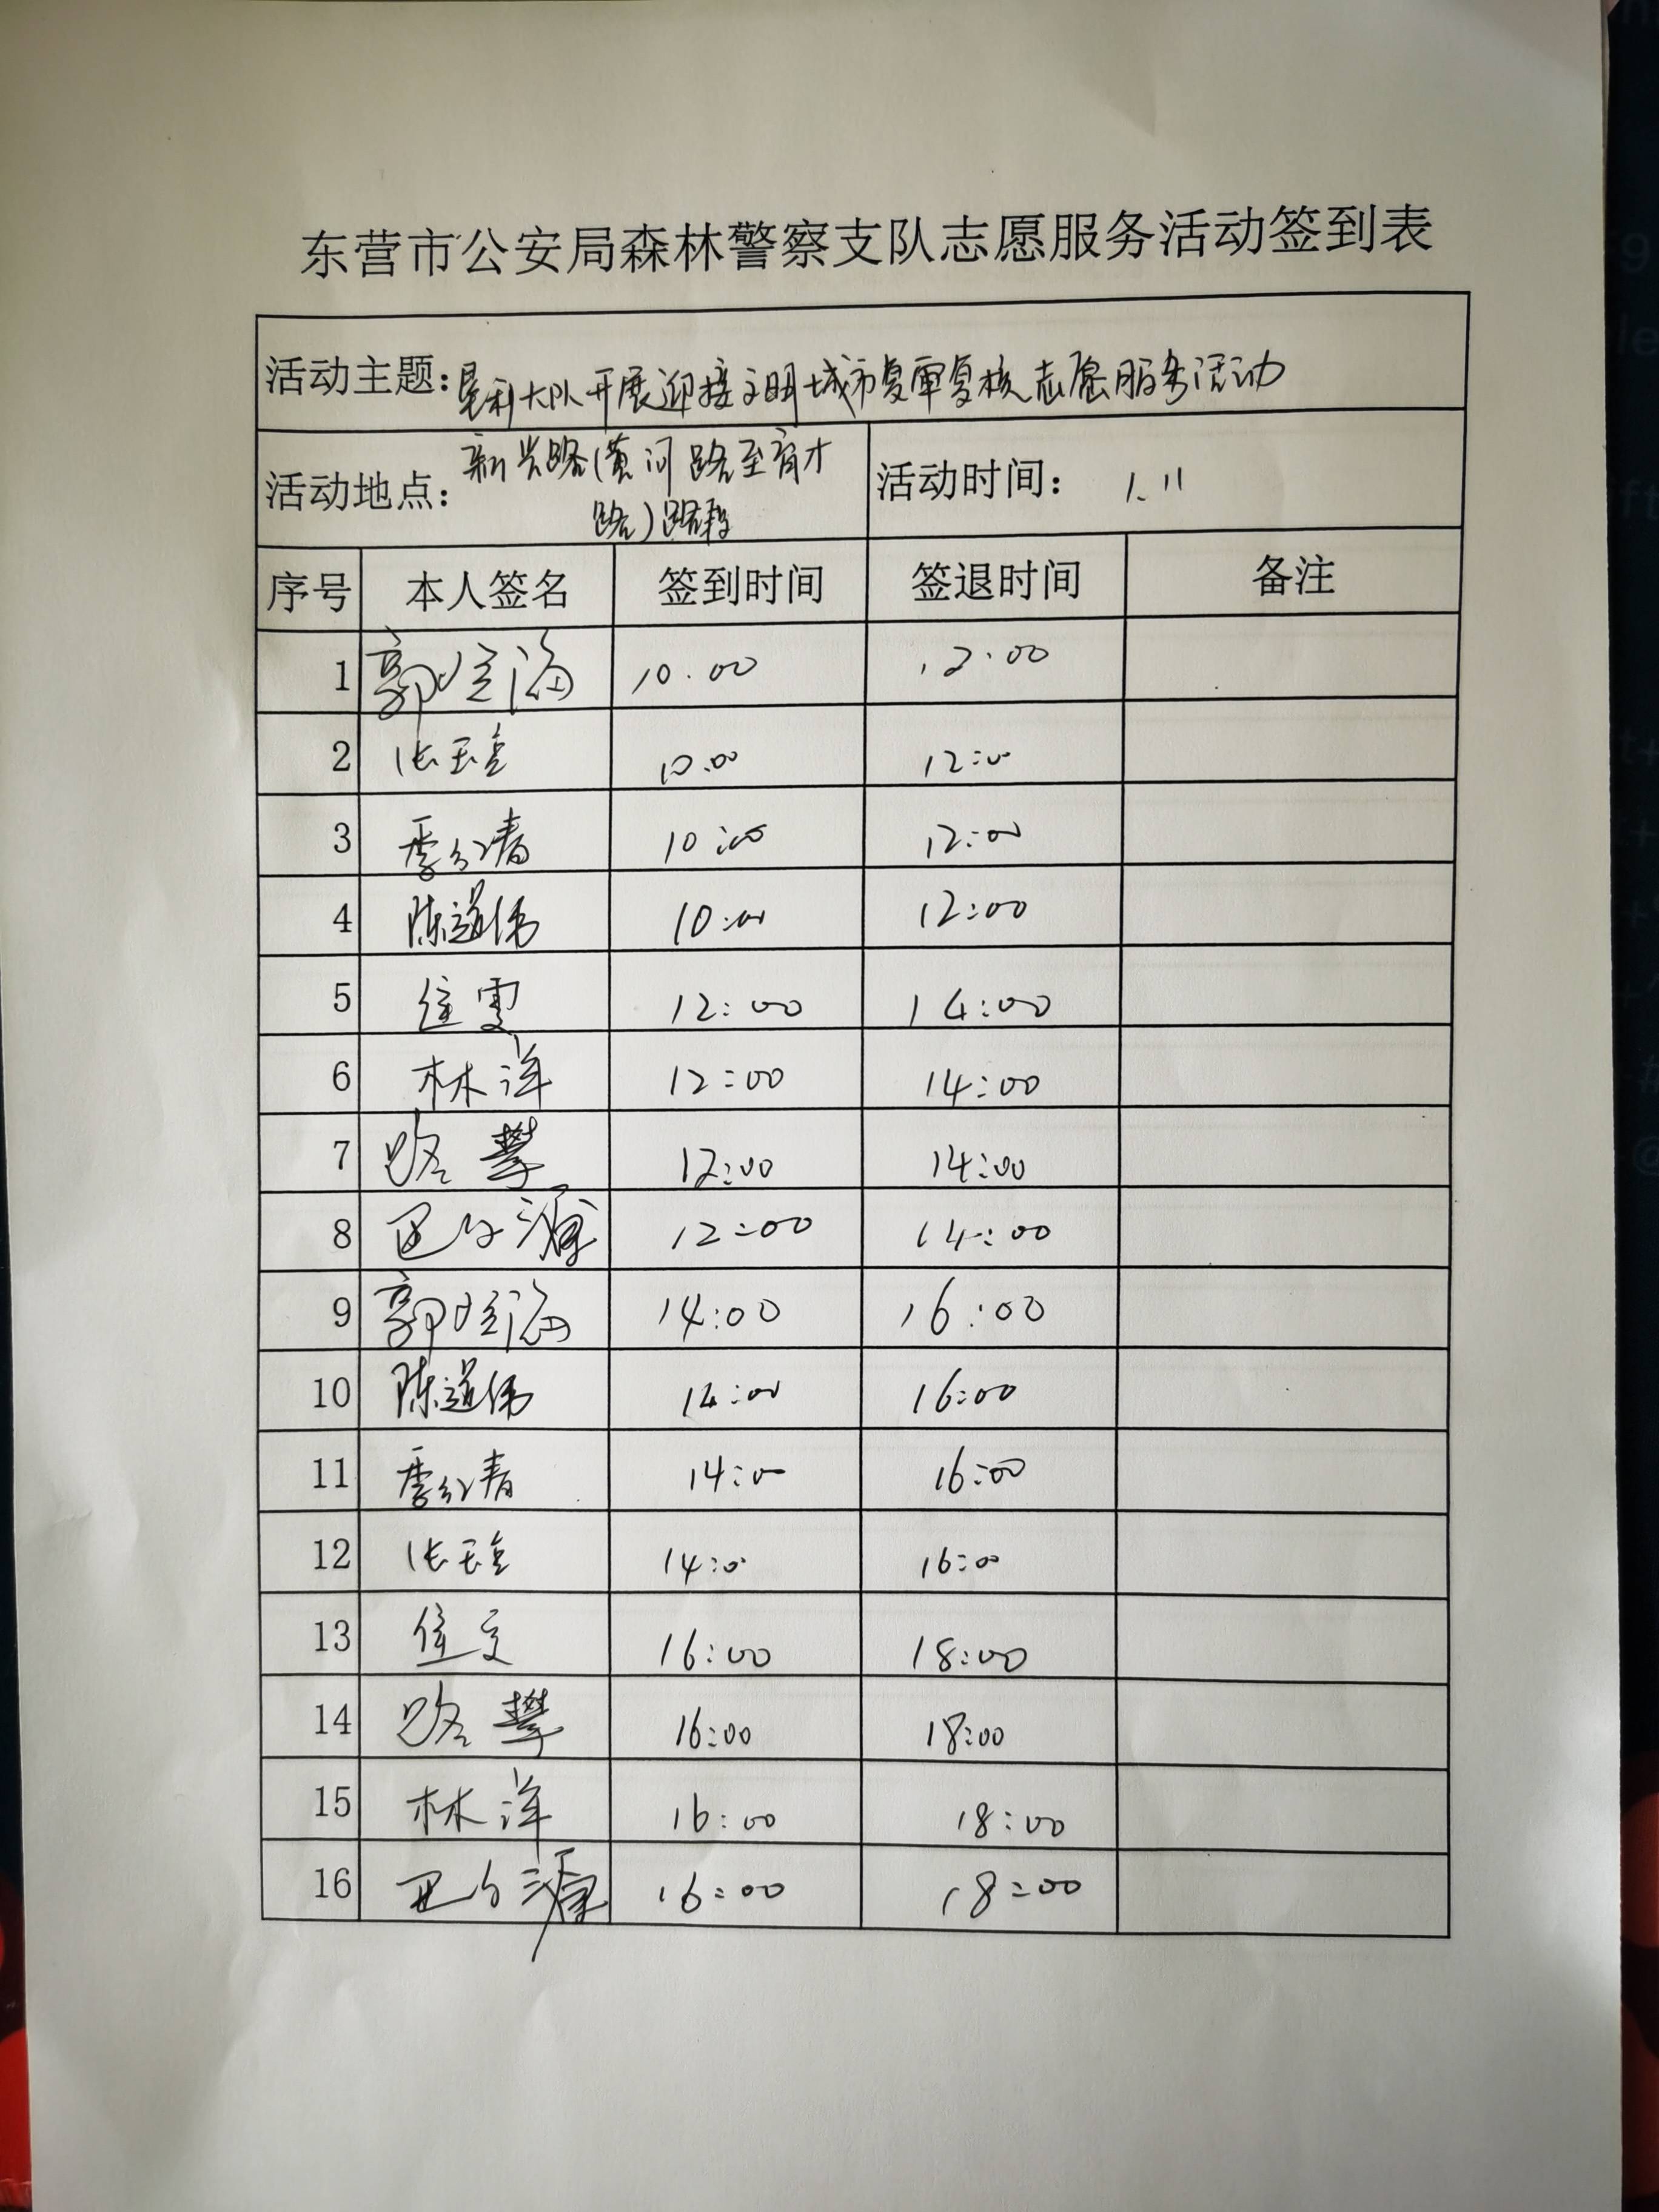 东营市公安局森林警察支队志愿服务活动签到表
活动主题：垦利大队开展迎接文明城市复审复核志愿服务活动
活动地点：新兴路（黄河路至育才
路）路段
活动时间： 1.11
序号 本人签名 签到时间 签退时间 备注
1 郭 海 10.00 12.00
2 张玉 10.00 12:00
3 季 青 10:00 12:00
4 陈道伟 10:00 12:00
5 12:00 14:00
6 林洋 12:00 14:00
7 路攀 12:00 14:00
8 源 12:00 14:00
9 郭 海 14:00 16:00
10 陈道伟 14:00 16:00
11 季 青 14:00 16:00
12 张玉 14:00 16:00
13 16:00 18:00
14 路攀 16:00 18:00
15 林洋 16:00 18:00
16 源 16:00 18:00